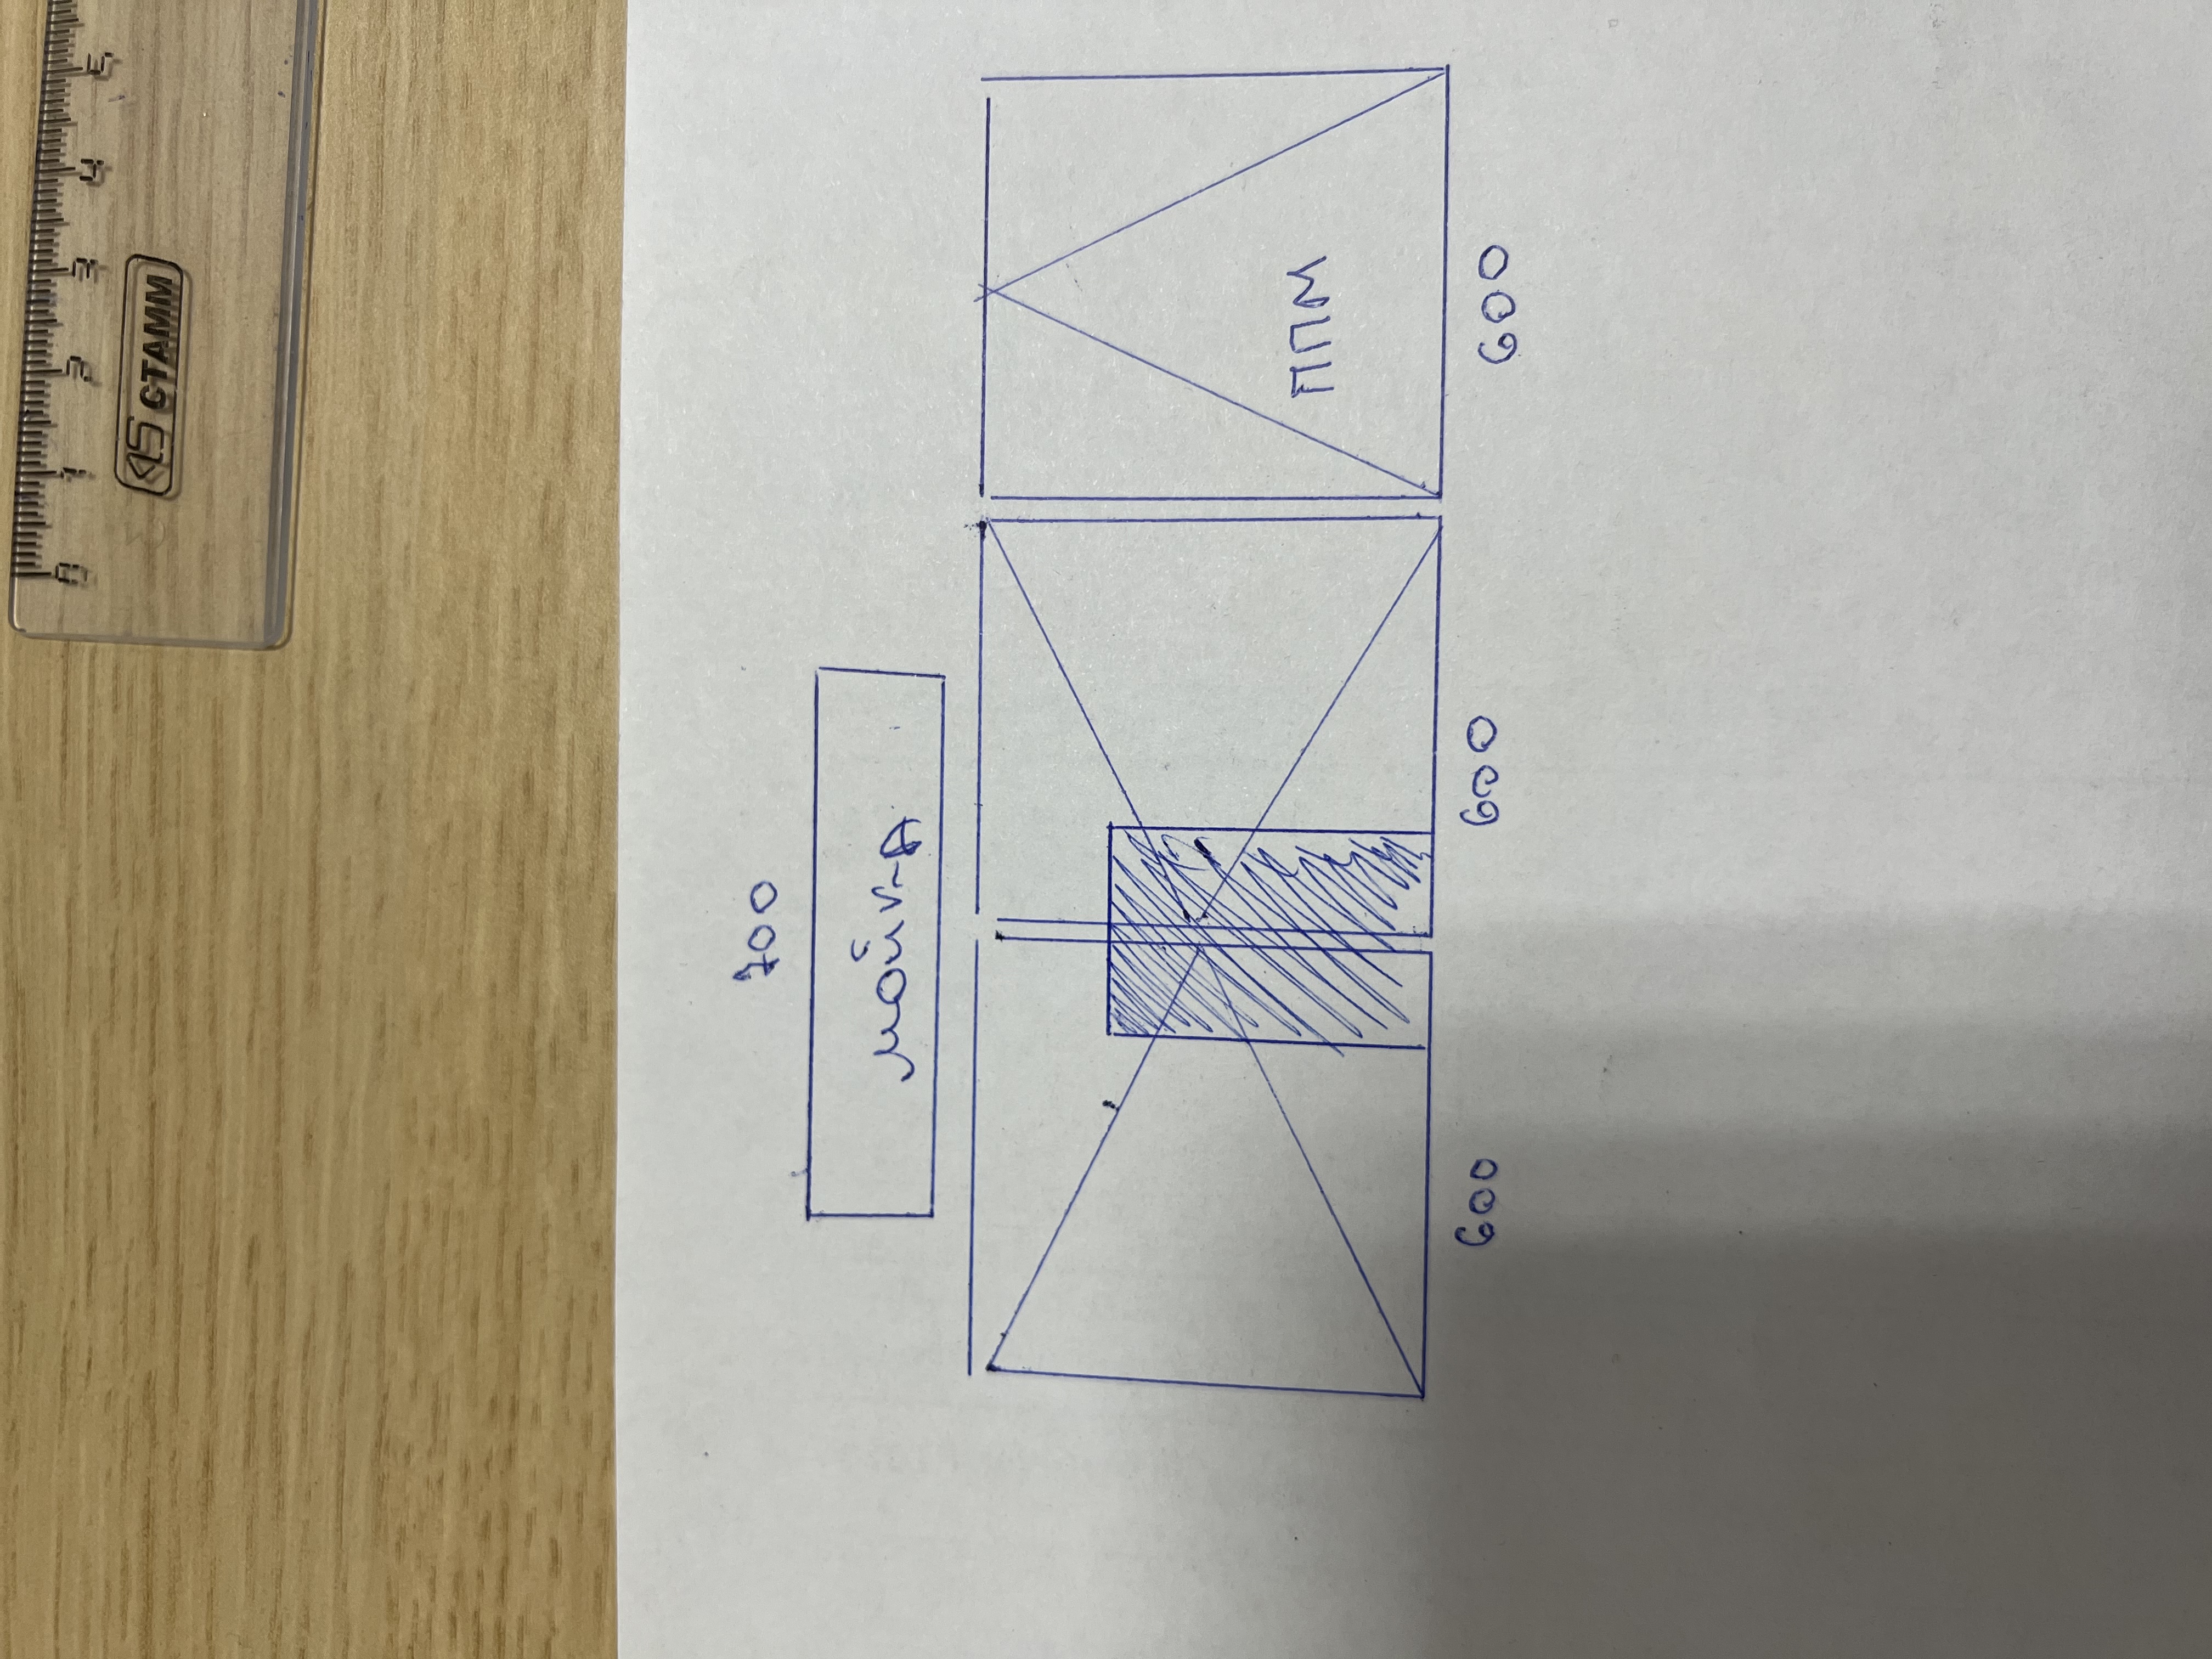 0 1 2 3 4 5
СТАММ
700
мойка
ППМ
600 600 600